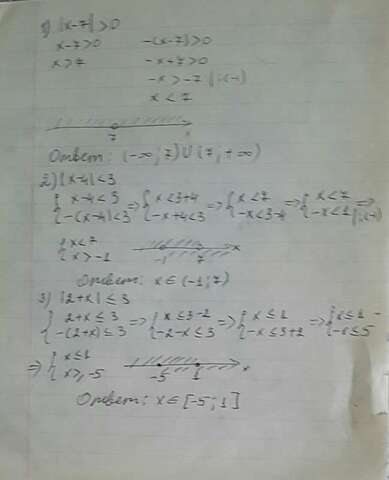 1) |x-7|>0
x-7>0   -(x-7)>0
x>7   -x+7>0
-x>-7 |:(-1)
x<7
7   x
Ответ: (-∞;7)∪(7;+∞)
2) |x-4|<3
{x-4<3 ⇒ {x<3+4 ⇒ {x<7 ⇒ {x<7 ⇒
{-(x-4)<3   {-x+4<3   {-x<3-4   {-x<1 |:(-1)
{x<7
{x>-1   -1   7   x
Ответ: x∈(-1;7)
3) |2+x|≤3
{2+x≤3 ⇒ {x≤3-2 ⇒ {x≤1 ⇒ {x≤1
{-(2+x)≤3   {-2-x≤3   {-x≤3+2   {-x≤5
⇒ {x≤1
{x≥-5   -5   1   x
Ответ: x∈[-5;1]